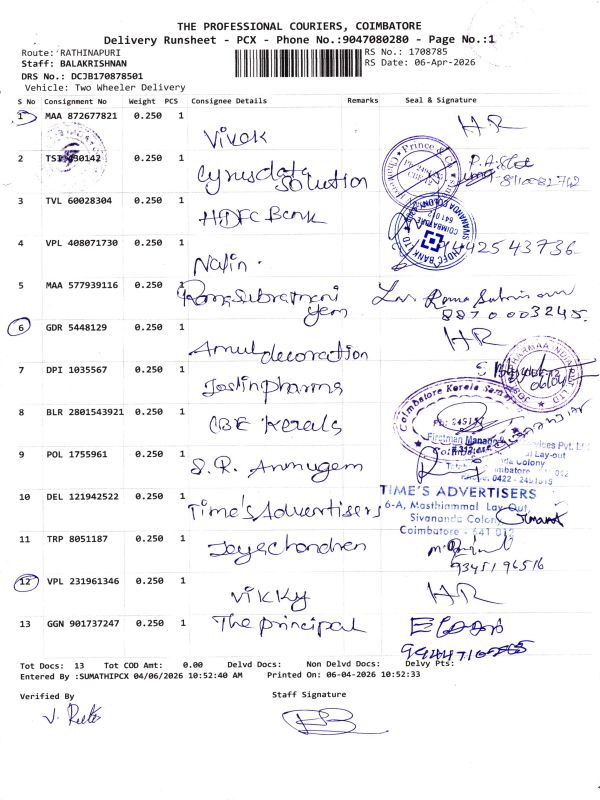 THE PROFESSIONAL COURIERS, COIMBATORE
Delivery Runsheet - PCX - Phone No.:9047080280 - Page No.:1
Route: RATHINAPURI
RS No.: 1708785
Staff: BALAKRISHNAN
RS Date: 06-Apr-2026
DRS No.: DCJB170878501
Vehicle: Two Wheeler Delivery
S No Consignment No Weight PCS Consignee Details Remarks Seal & Signature
1 MAA 872677821 0.250 1
Vivek HR
2 0.250 1
Cyrusdata Solution
Prince & Co
3 TVL 60028304 0.250 1
HDFC Bank
HDFC BANK LTD
COIMBATORE
4 VPL 408071730 0.250 1
Nalin. 9442543736
5 MAA 577939116 0.250 1
Rama Subramani
8870003245
6 GDR 5448129 0.250 1
Amul decoration HR
7 DPI 1035567 0.250 1
Joslin pharma
8 BLR 2801543921 0.250 1
CBE Kerala
Coimbatore Kerala
9 POL 1755961 0.250 1
S. R. Arumugam
Firstman Manag
vices Pvt. Ltd
Lay-out
Colony
10 DEL 121942522 0.250 1
Time's Advertisers
TIME'S ADVERTISERS
6-A, Masthiammal Lay Out,
Sivananda Colony
Coimbatore - 641 012
11 TRP 8051187 0.250 1
Jayachandren
9345196516
12 VPL 231961346 0.250 1
Vikky HR
13 GGN 901737247 0.250 1
The principal
Tot Docs: 13 Tot COD Amt: 0.00 Delvd Docs: Non Delvd Docs: Delvy Pts:
Entered By :SUMATHIPCX 04/06/2026 10:52:40 AM Printed On: 06-04-2026 10:52:33
Verified By Staff Signature